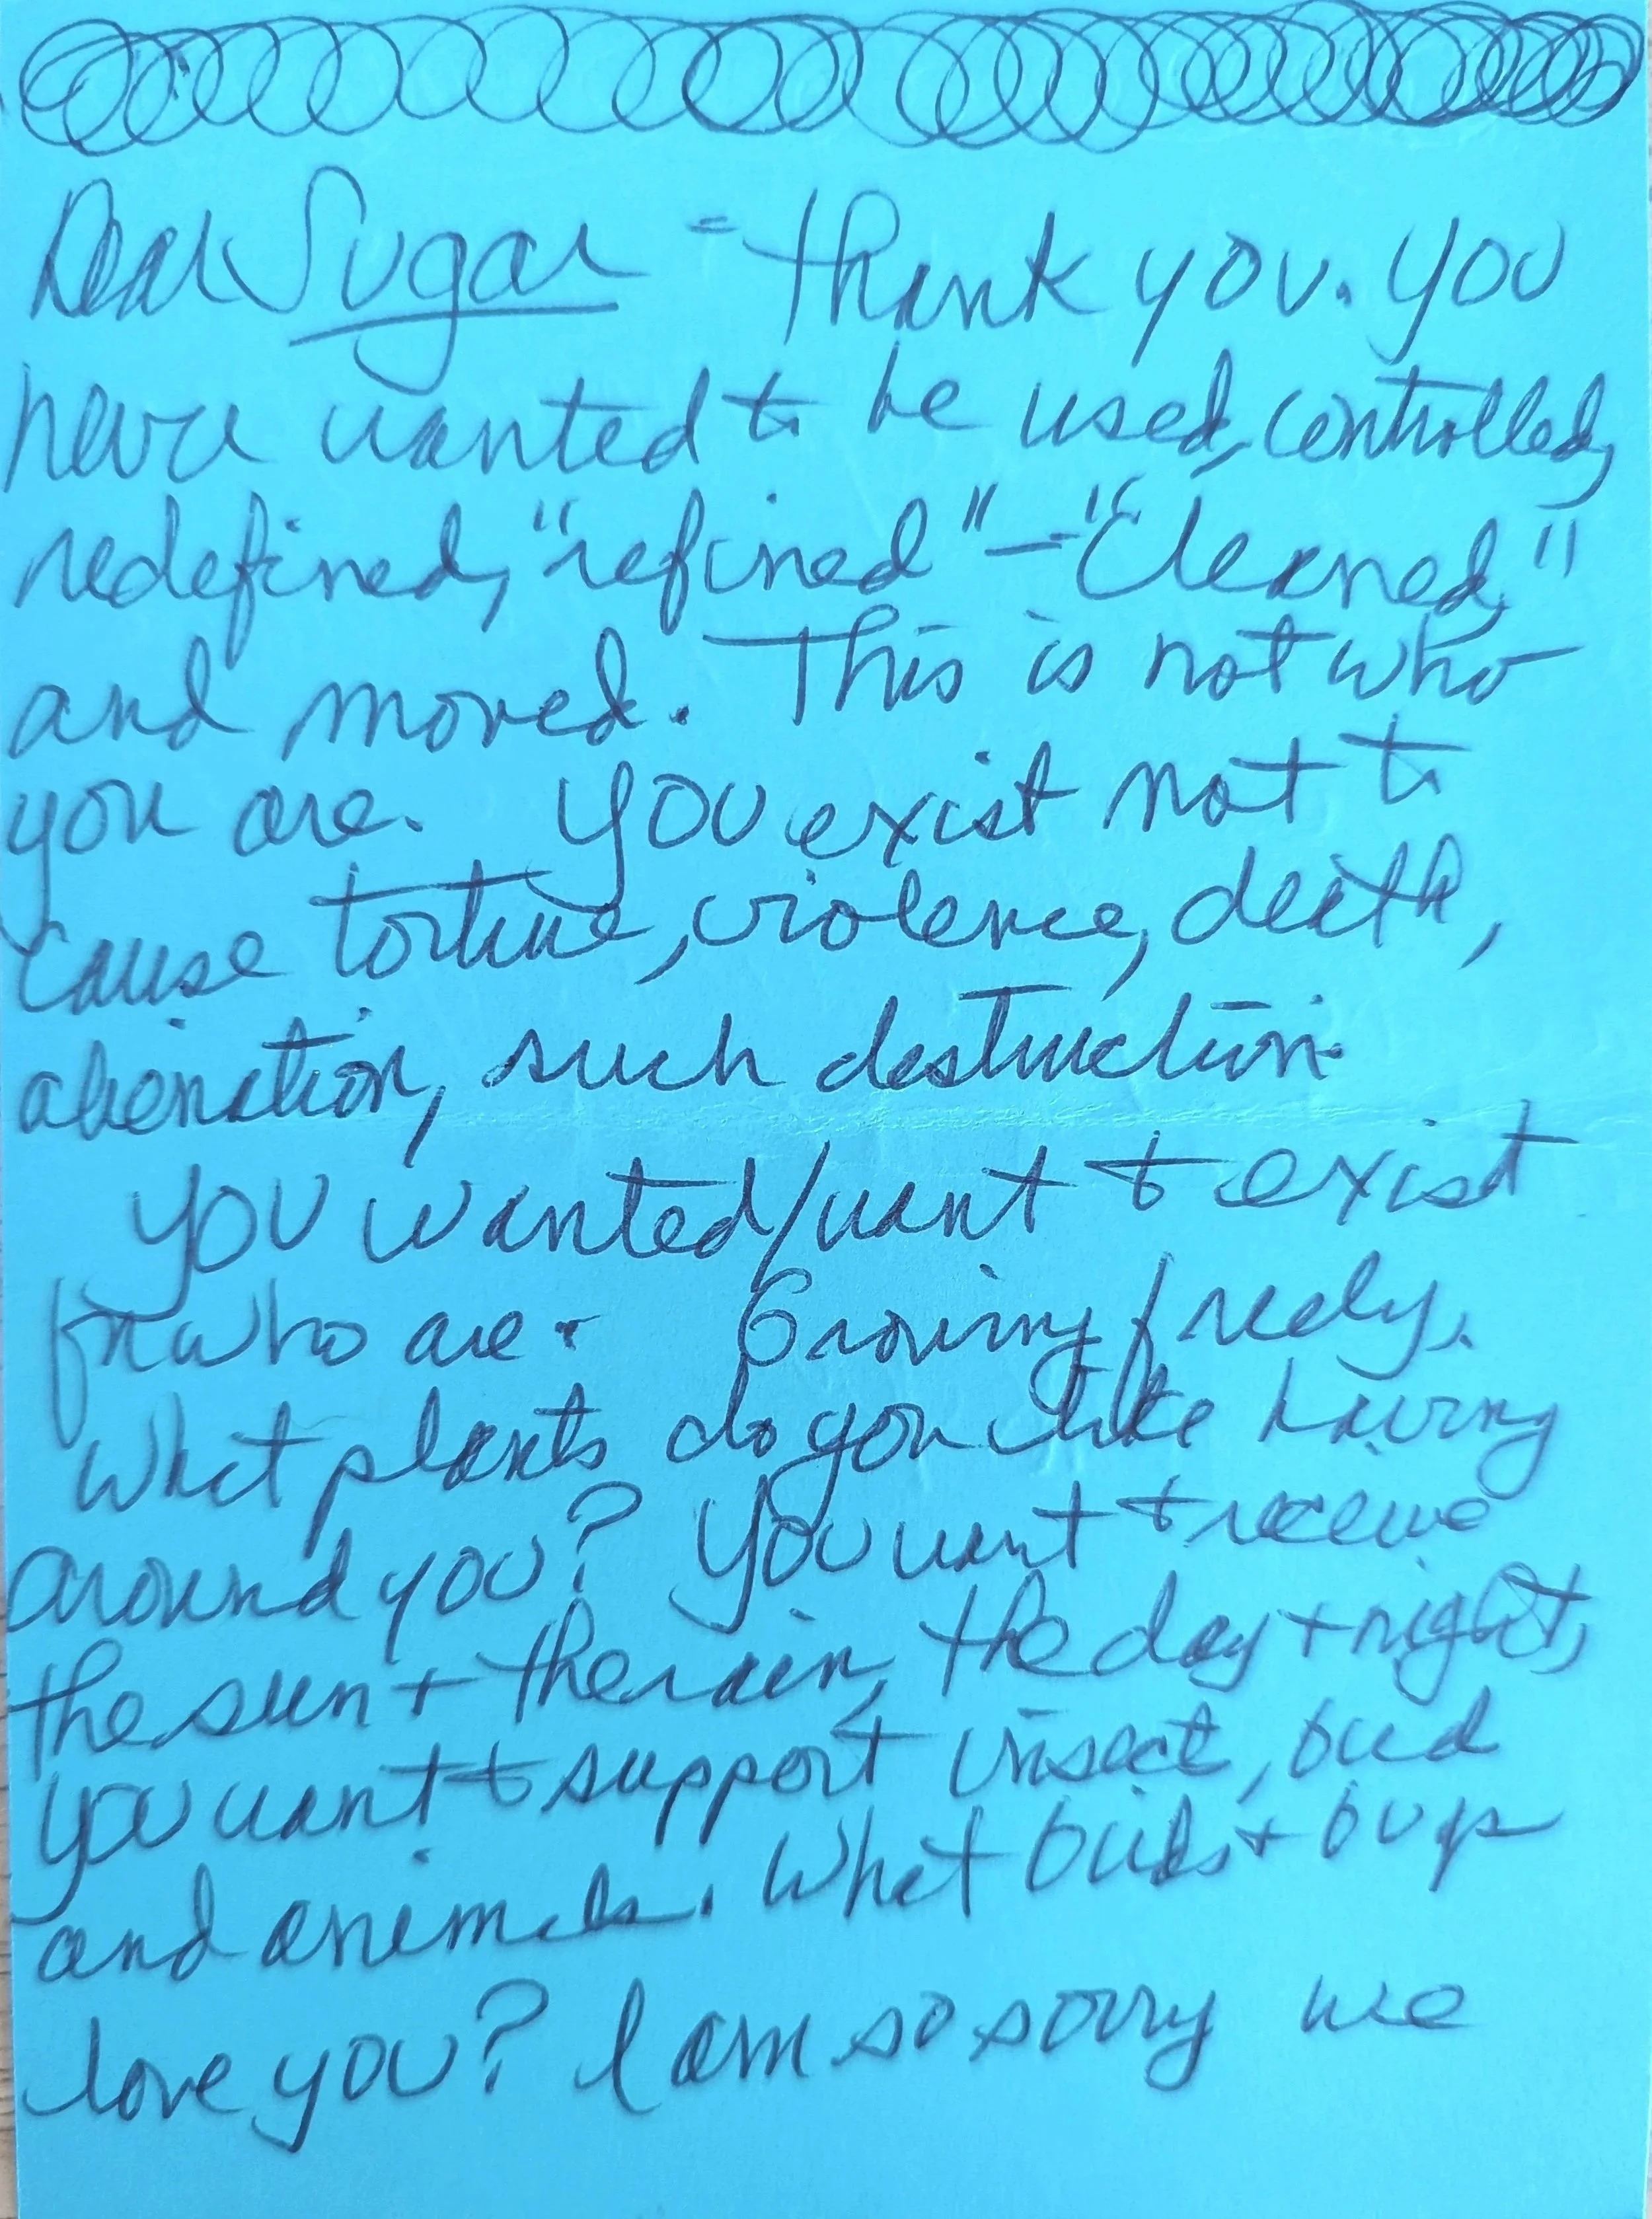 Dear Sugar - Thank you. You
never wanted to be used, controlled,
redefined, "refined" - "Cleaned,"
and moved. This is not who
you are. You exist not to
cause torture, violence, death,
alienation, such destruction.
You wanted/want to exist
for who are. Growing freely.
What plants do you like having
around you? You want to receive
the sun + the rain, the day + night,
you want to support insect, bird
and animals. What birds + bugs
love you? I am so sorry we